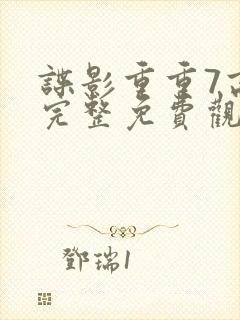 諜影重重7高
完整免費觀
鄧瑞1